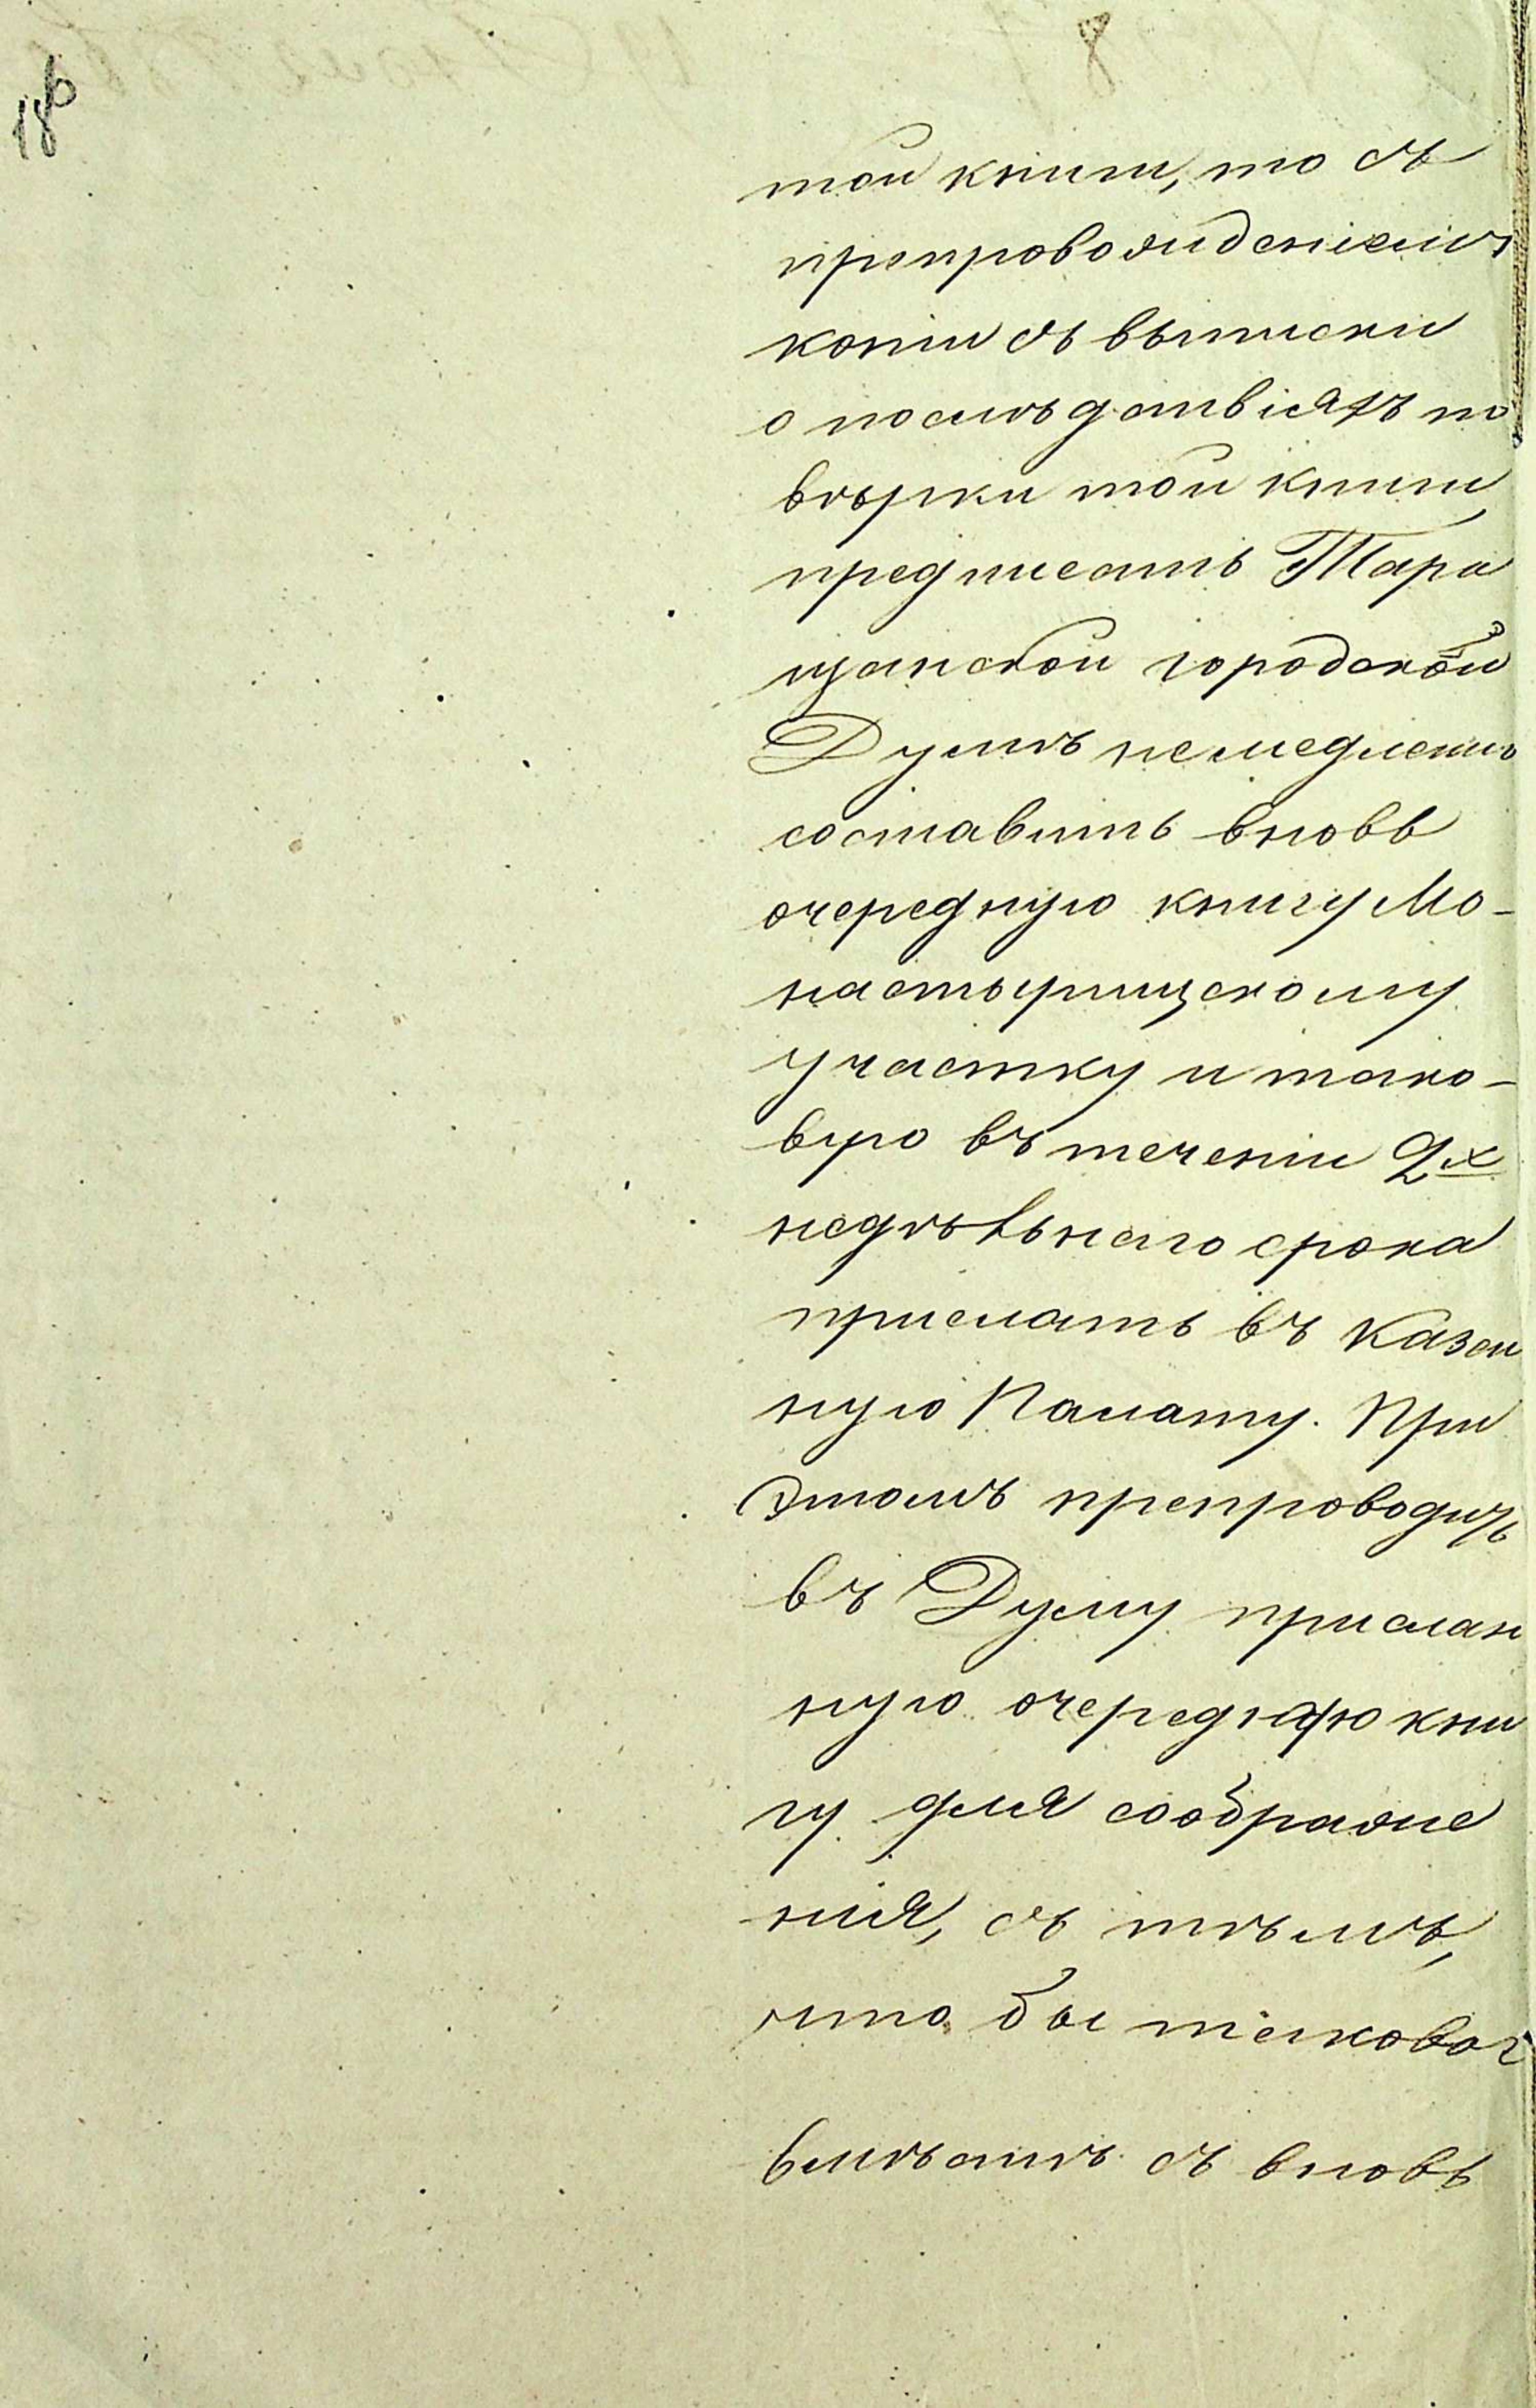 той книги, то съ
препровожденіемъ
копіи съ выписки
о послѣдствіяхъ по
вѣрки той книги,
предписать Тара
щанской городской
Думѣ немедленно
составить вновь
очередную книгу Мо-
настырищскому
участку и тако-
вую въ теченіи 2х
недѣльнаго срока
прислать въ Казен
ную Палату. При
этомъ препроводить
въ Думу прислан
ную очередную кни
гу для соображе
нія, съ тѣмъ,
что бы таковая
вмѣстѣ съ вновь